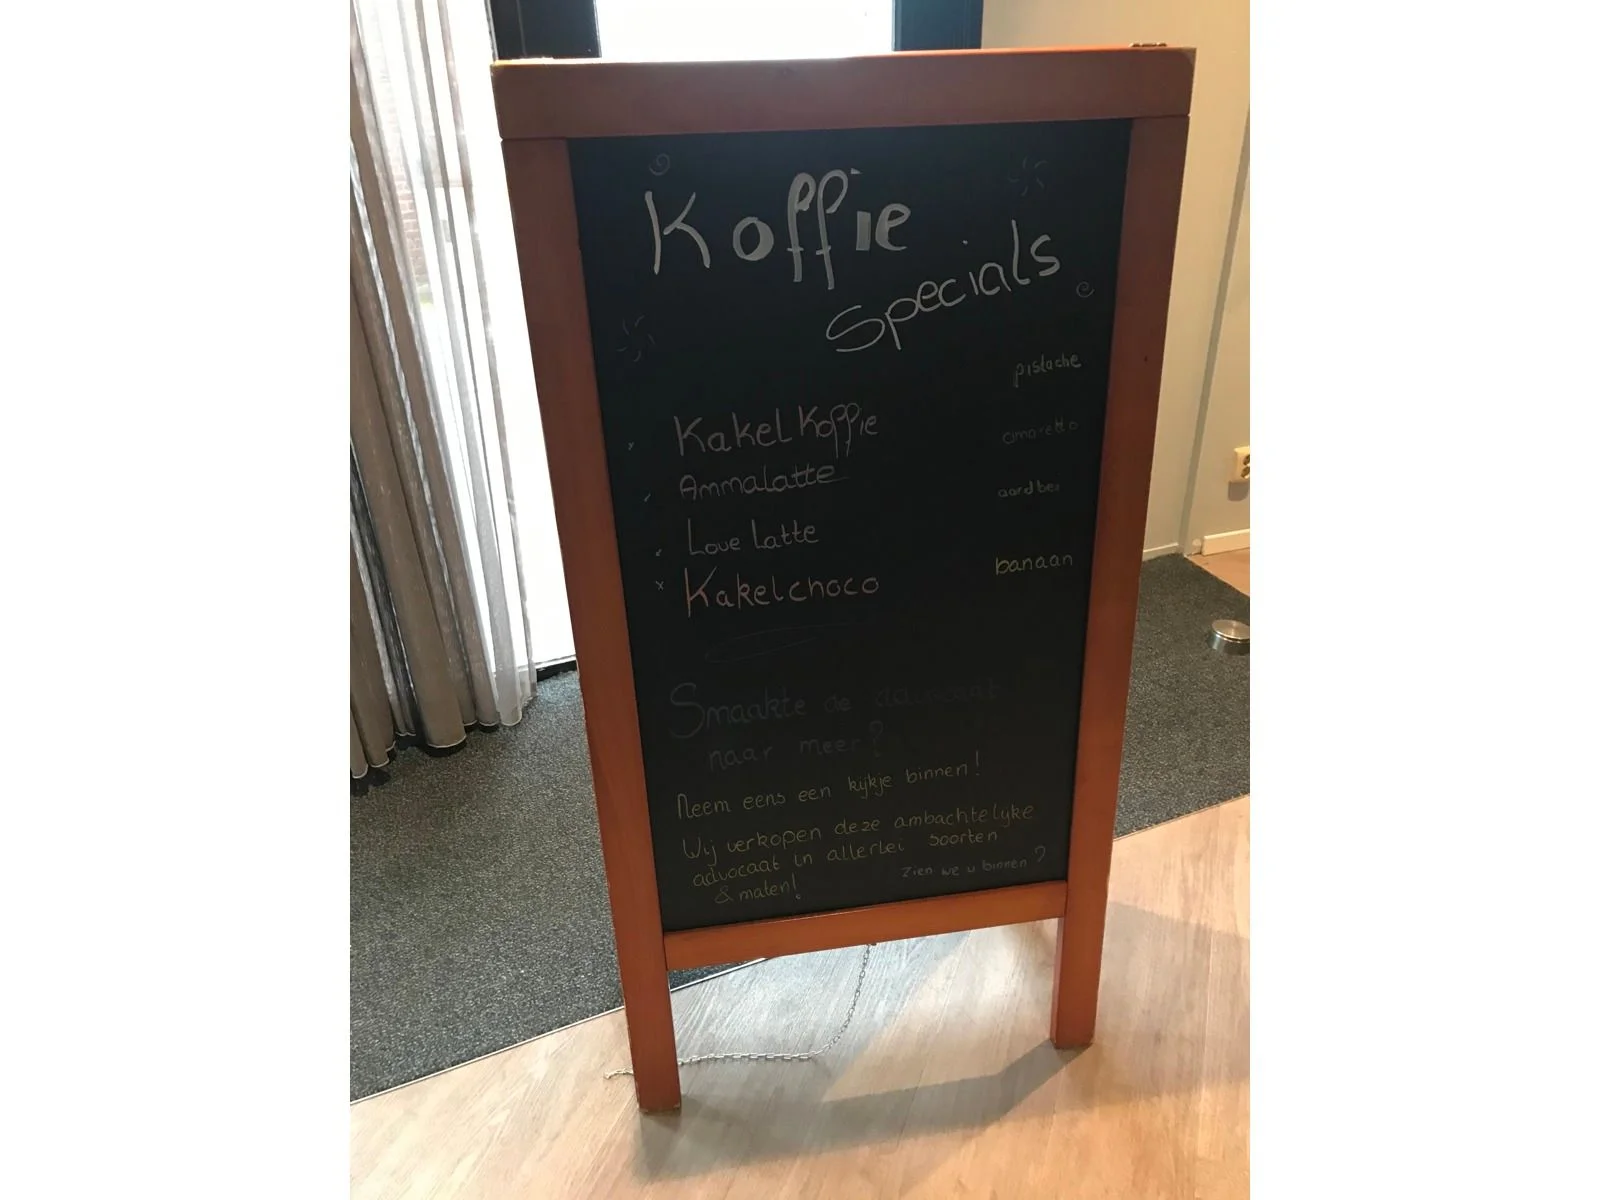 Koffie
Specials
pistache
Kakelkoffie
amaretto
Ammalatte
aardbei
Love Latte
banaan
Kakelchoco
Smaakte de advocaat
naar meer?
Neem eens een kijkje binnen!
Wij verkopen deze ambachtelijke
advocaat in allerlei soorten
& maten!
Zien we u binnen?